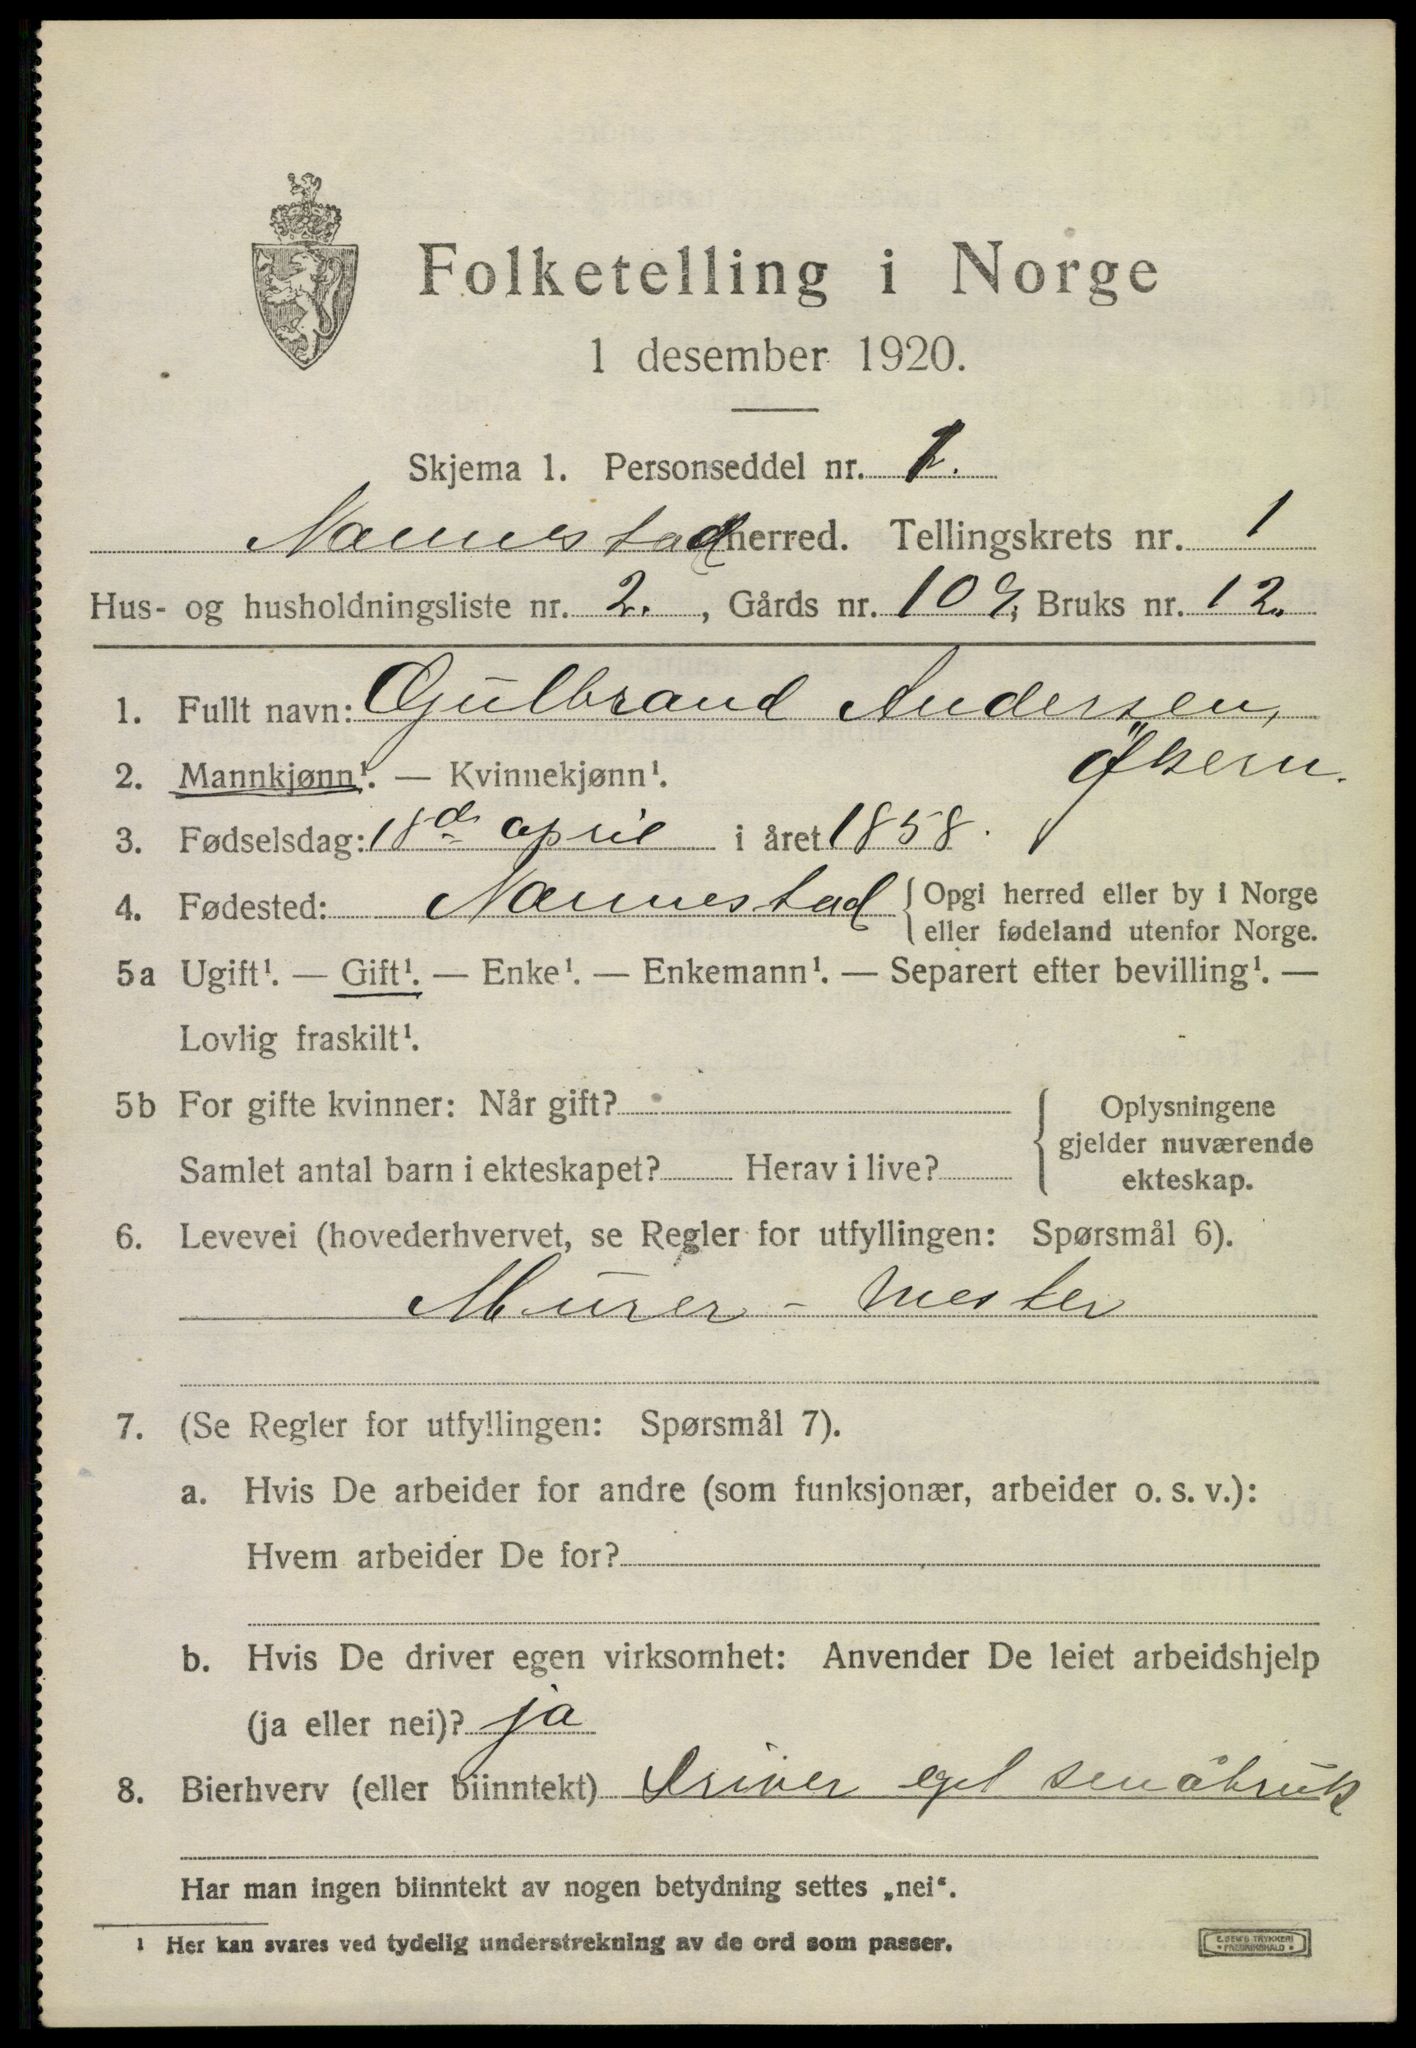 Folketelling i Norge
1 desember 1920.
Skjema 1. Personseddel nr. 1.
Nannestad herred. Tellingskrets nr. 1
Hus- og husholdningsliste nr. 2. , Gårds nr. 109, Bruks nr. 12.
1. Fullt navn: Gulbrand Andersen,
Økern.
2. Mannkjønn¹. — Kvinnekjønn¹.
3. Fødselsdag: 18de april i året 1858.
4. Fødested: Nannestad { Opgi herred eller by i Norge
eller fødeland utenfor Norge.
5a Ugift¹. — Gift¹. — Enke¹. — Enkemann¹. — Separert efter bevilling¹. —
Lovlig fraskilt¹.
5b For gifte kvinner: Når gift? { Oplysningene
gjelder nuværende
Samlet antal barn i ekteskapet? Herav i live? ekteskap.
6. Levevei (hovederhvervet, se Regler for utfyllingen: Spørsmål 6).
Murer - mester
7. (Se Regler for utfyllingen: Spørsmål 7).
a. Hvis De arbeider for andre (som funksjonær, arbeider o. s. v.):
Hvem arbeider De for?
b. Hvis De driver egen virksomhet: Anvender De leiet arbeidshjelp
(ja eller nei)? ja
8. Bierhverv (eller biinntekt) Driver eget småbruk
Har man ingen biinntekt av nogen betydning settes „nei“.
¹ Her kan svares ved tydelig understrekning av de ord som passer.
E. SEM'S TRYKKERI
• FREDRIKSHALD •